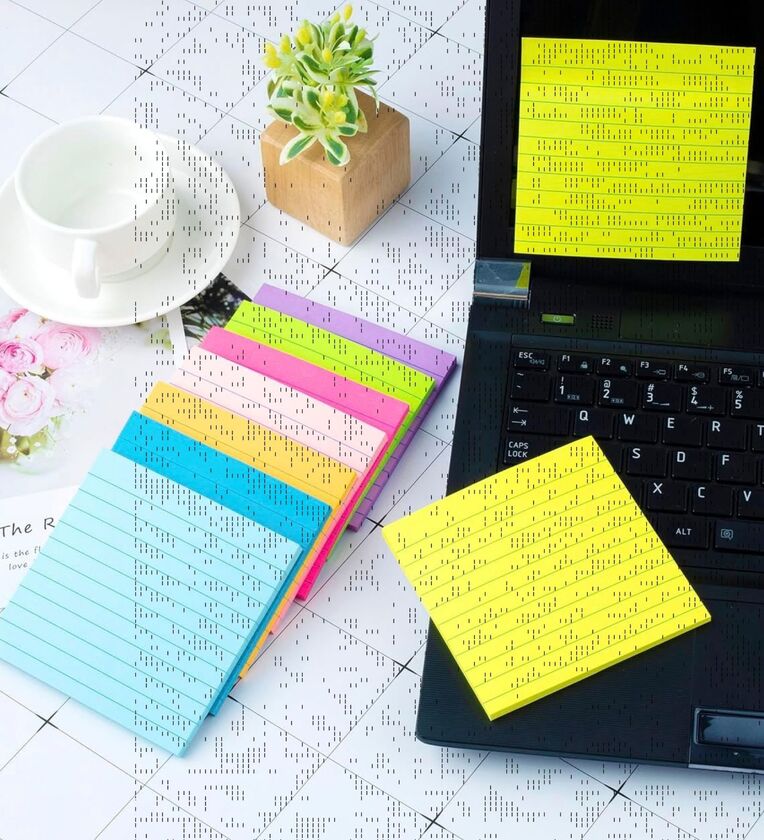 The R
is the fl
love
ESC
F1 F2 F3 F4 F5
~ ! @ # $ %
` 1 2 3 4 5
Q W E R T
CAPS LOCK
S D F
X C V
ALT